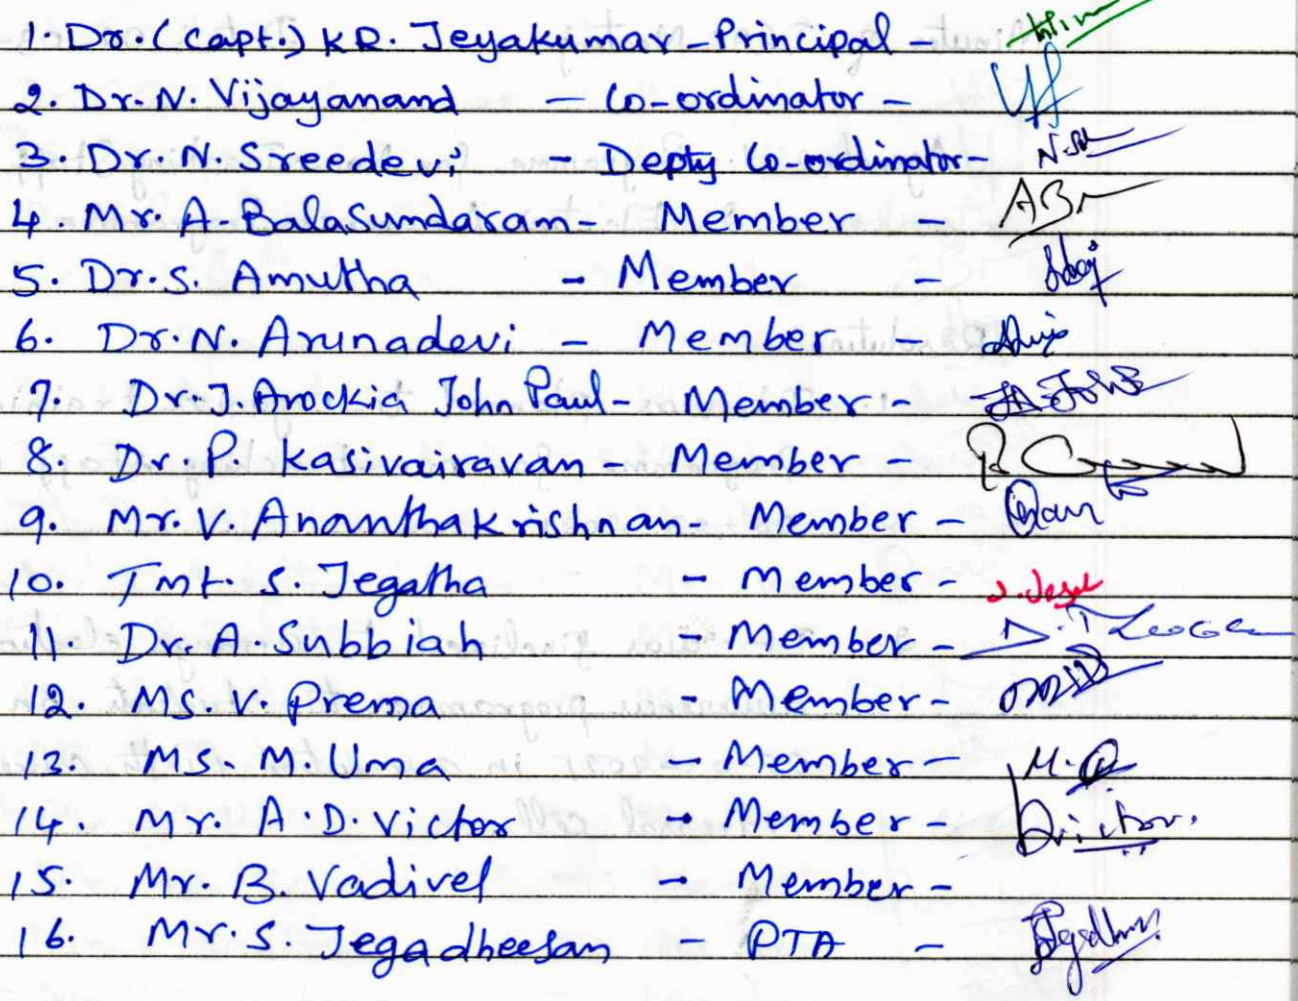 1. Dr. (Capt.) KR. Jeyakumar - Principal -
2. Dr. N. Vijayanand - Co-ordinator -
3. Dr. N. Sreedevi - Depty Co-ordinator - N.
4. Mr. A. Balasundaram - Member -
5. Dr. S. Amutha - Member -
6. Dr. N. Arunadevi - Member -
7. Dr. J. Arockia John Paul - Member -
8. Dr. P. Kasivairavan - Member -
9. Mr. V. Ananthakrishnan - Member -
10. Tmt. S. Jegatha - Member -
11. Dr. A. Subbiah - Member -
12. Ms. V. Prema - Member -
13. Ms. M. Uma - Member - M.
14. Mr. A. D. Victor - Member - Victor.
15. Mr. B. Vadivel - Member -
16. Mr. S. Jegadheesan - PTA -